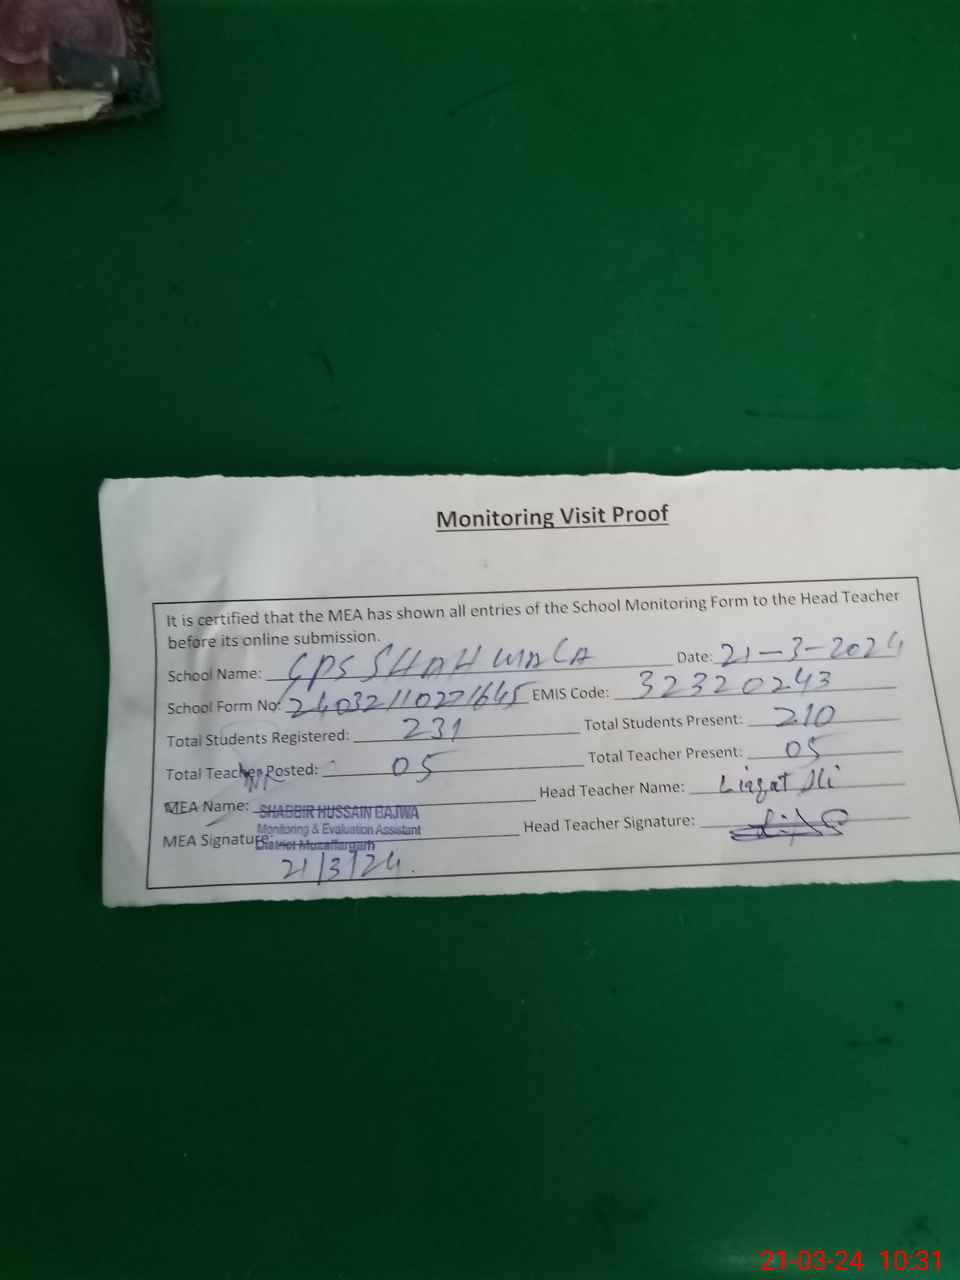 Monitoring Visit Proof
It is certified that the MEA has shown all entries of the School Monitoring Form to the Head Teacher
before its online submission.
School Name: GPS SHAH WALA Date: 21-3-2024
School Form No: 24032110271645 EMIS Code: 32320243
Total Students Registered: 231 Total Students Present: 210
Total Teacher Posted: 05 Total Teacher Present: 05
MEA Name: SHABBIR HUSSAIN BAJWA Head Teacher Name: Liaqat Ali
Monitoring & Evaluation Assistant
MEA Signature: District Muzaffargarh Head Teacher Signature:
21/3/24.
21-03-24 10:31